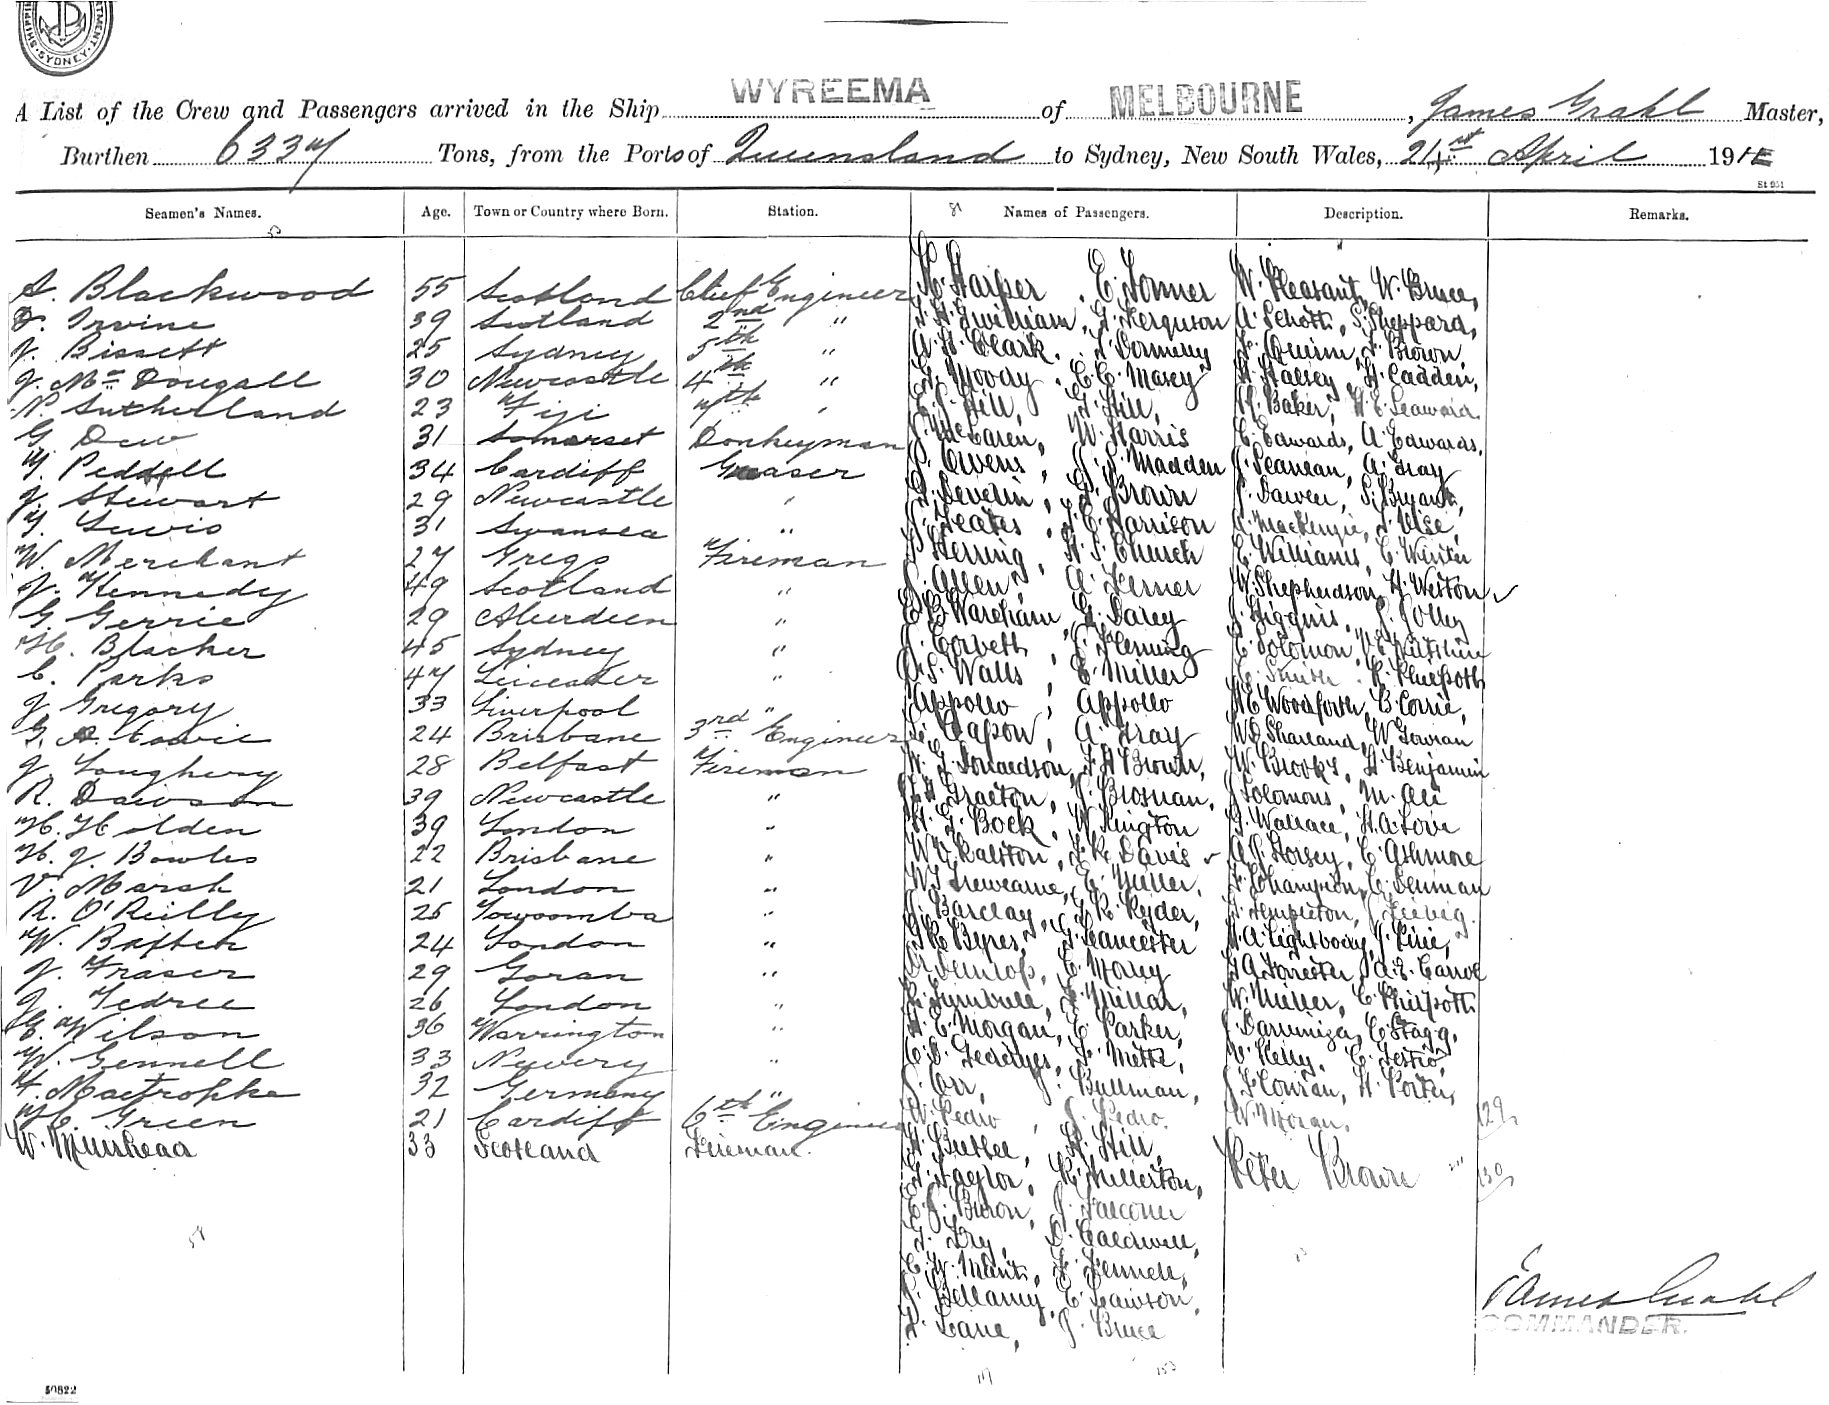 SYDNEY
WYREEMA MELBOURNE
A List of the Crew and Passengers arrived in the Ship of , James Grahl Master,
Burthen 6337 Tons, from the Ports of Queensland to Sydney, New South Wales, 21st April 191
St 931
Seamen's Names. Age. Town or Country where Born. Station. Names of Passengers. Description. Remarks.
A. Blackwood 55 Scotland Chief Engineer K. Harper E. Tonner W. Pleasant, W. Bruce,
D. Irvine 39 Scotland 2nd " Gwilliam, G. Ferguson A. Schott, S. Sheppard,
J. Bissett 25 Sydney 5th " A. H. Clark. J. Quinn, J. Brown,
J. McDougall 30 Newcastle 4th " G. Moody. C. C. Massey H. Halsey, H. Cadden,
N. Sutherland 23 Fiji 7th " Hill, Hill, H. Baker, H. E. Seaward.
G. Dew 31 Somerset Donkeyman J. McLaren, W. Harris C. Edwards, A. Edwards,
Y. Peddell 34 Cardiff Greaser J. Owens, J. J. Madden J. Seanean, A. Gray
J. Stewart 29 Newcastle " G. Devlin, G. Brown J. Dawen, S. Bryant,
Y. Lewis 31 Swansea " J. Yeates, J. C. Harrison J. Mackenzie, J. Vise,
W. Merchant 27 Fireman Herring, H. J. Church E. Williams, C. Winter
J. Kennedy 49 Scotland " J. Allen, A. Ferner W. Shepherdson, H. Weston
G. Gerrie 29 Aberdeen " E. B. Wareham, G. Darcy J. Higgins, J. Jolley
H. Blacker 45 Sydney " J. Corvett, J. Fleming E. Solomon, V. E. Wiltshire
C. Parks 47 Leicester " J. S. Walls, E. Miller E. Smith. R. Philpotts
J. Gregory 33 Liverpool " Appollo, Appollo H. E. Woodforth, B. Corrie,
G. A. Cowie 24 Brisbane 3rd Engineer Capon, A. Gray W. D. Sharland, W. Gowran
J. Loughery 28 Belfast Fireman W. G. Donaldson, F. H. Brown, W. Brooks, H. Benjamin
R. Dawson 39 Newcastle " J. H. Gratton, J. Brosnan, J. Solomons, M. Ali
H. Holden 39 London " H. G. Bock, W. Kington G. Wallace, H. A. Love
H. J. Bowles 22 Brisbane " W. V. Ralston, J. R. Davis A. J. Horsey, C. Ashmore
V. Marsh 21 London " W. J. Trewearne, E. Miller, J. Champion, C. Denman
R. O'Reilly 25 Towoomba " J. Barclay, G. R. Ryder, H. Templeton, J. Liebig.
W. Baxter 24 London " G. R. Byres, G. Leancester H. A. Lightbody, J. Pirie,
J. Fraser 29 Goran " A. Dunlop, E. Morey G. A. Forrester, A. E. Carrol
J. Fedree 26 London " E. Millar, W. Miller, C. Philpotts
E. Wilson 36 Warrington " H. E. Morgan, C. Parker, J. Darveniza, C. Stagg,
W. Gennell 33 Newery " C. D. Geddyes, J. Mette, K. Kelly, C. Testro,
F. Mactrophke 32 Germany " J. Orr, J. Bullman, J. F. Conran, H. Porter,
H. C. Green 21 Cardiff 6th Engineer W. Pedro, J. Pedro. W. Moran. 129
W. Muirhead 33 Scotland Fireman. H. Butler, H. Hill,
G. Taylor, R. Millerton, Peter Brown 130
E. J. Buron, J. Falconer
G. Fry, D. Caldwell,
C. W. Mant, J. Fennell,
J. Bellamy, E. Lawson,
Lane, J. Bruce
James Grahl
COMMANDER.
50822